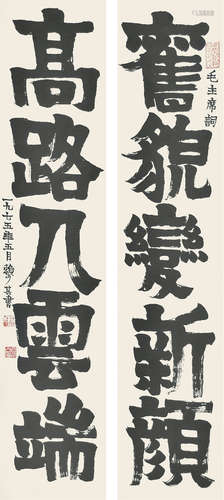 毛主席詞
舊貌變新顔
高路入雲端
一九六五年五月